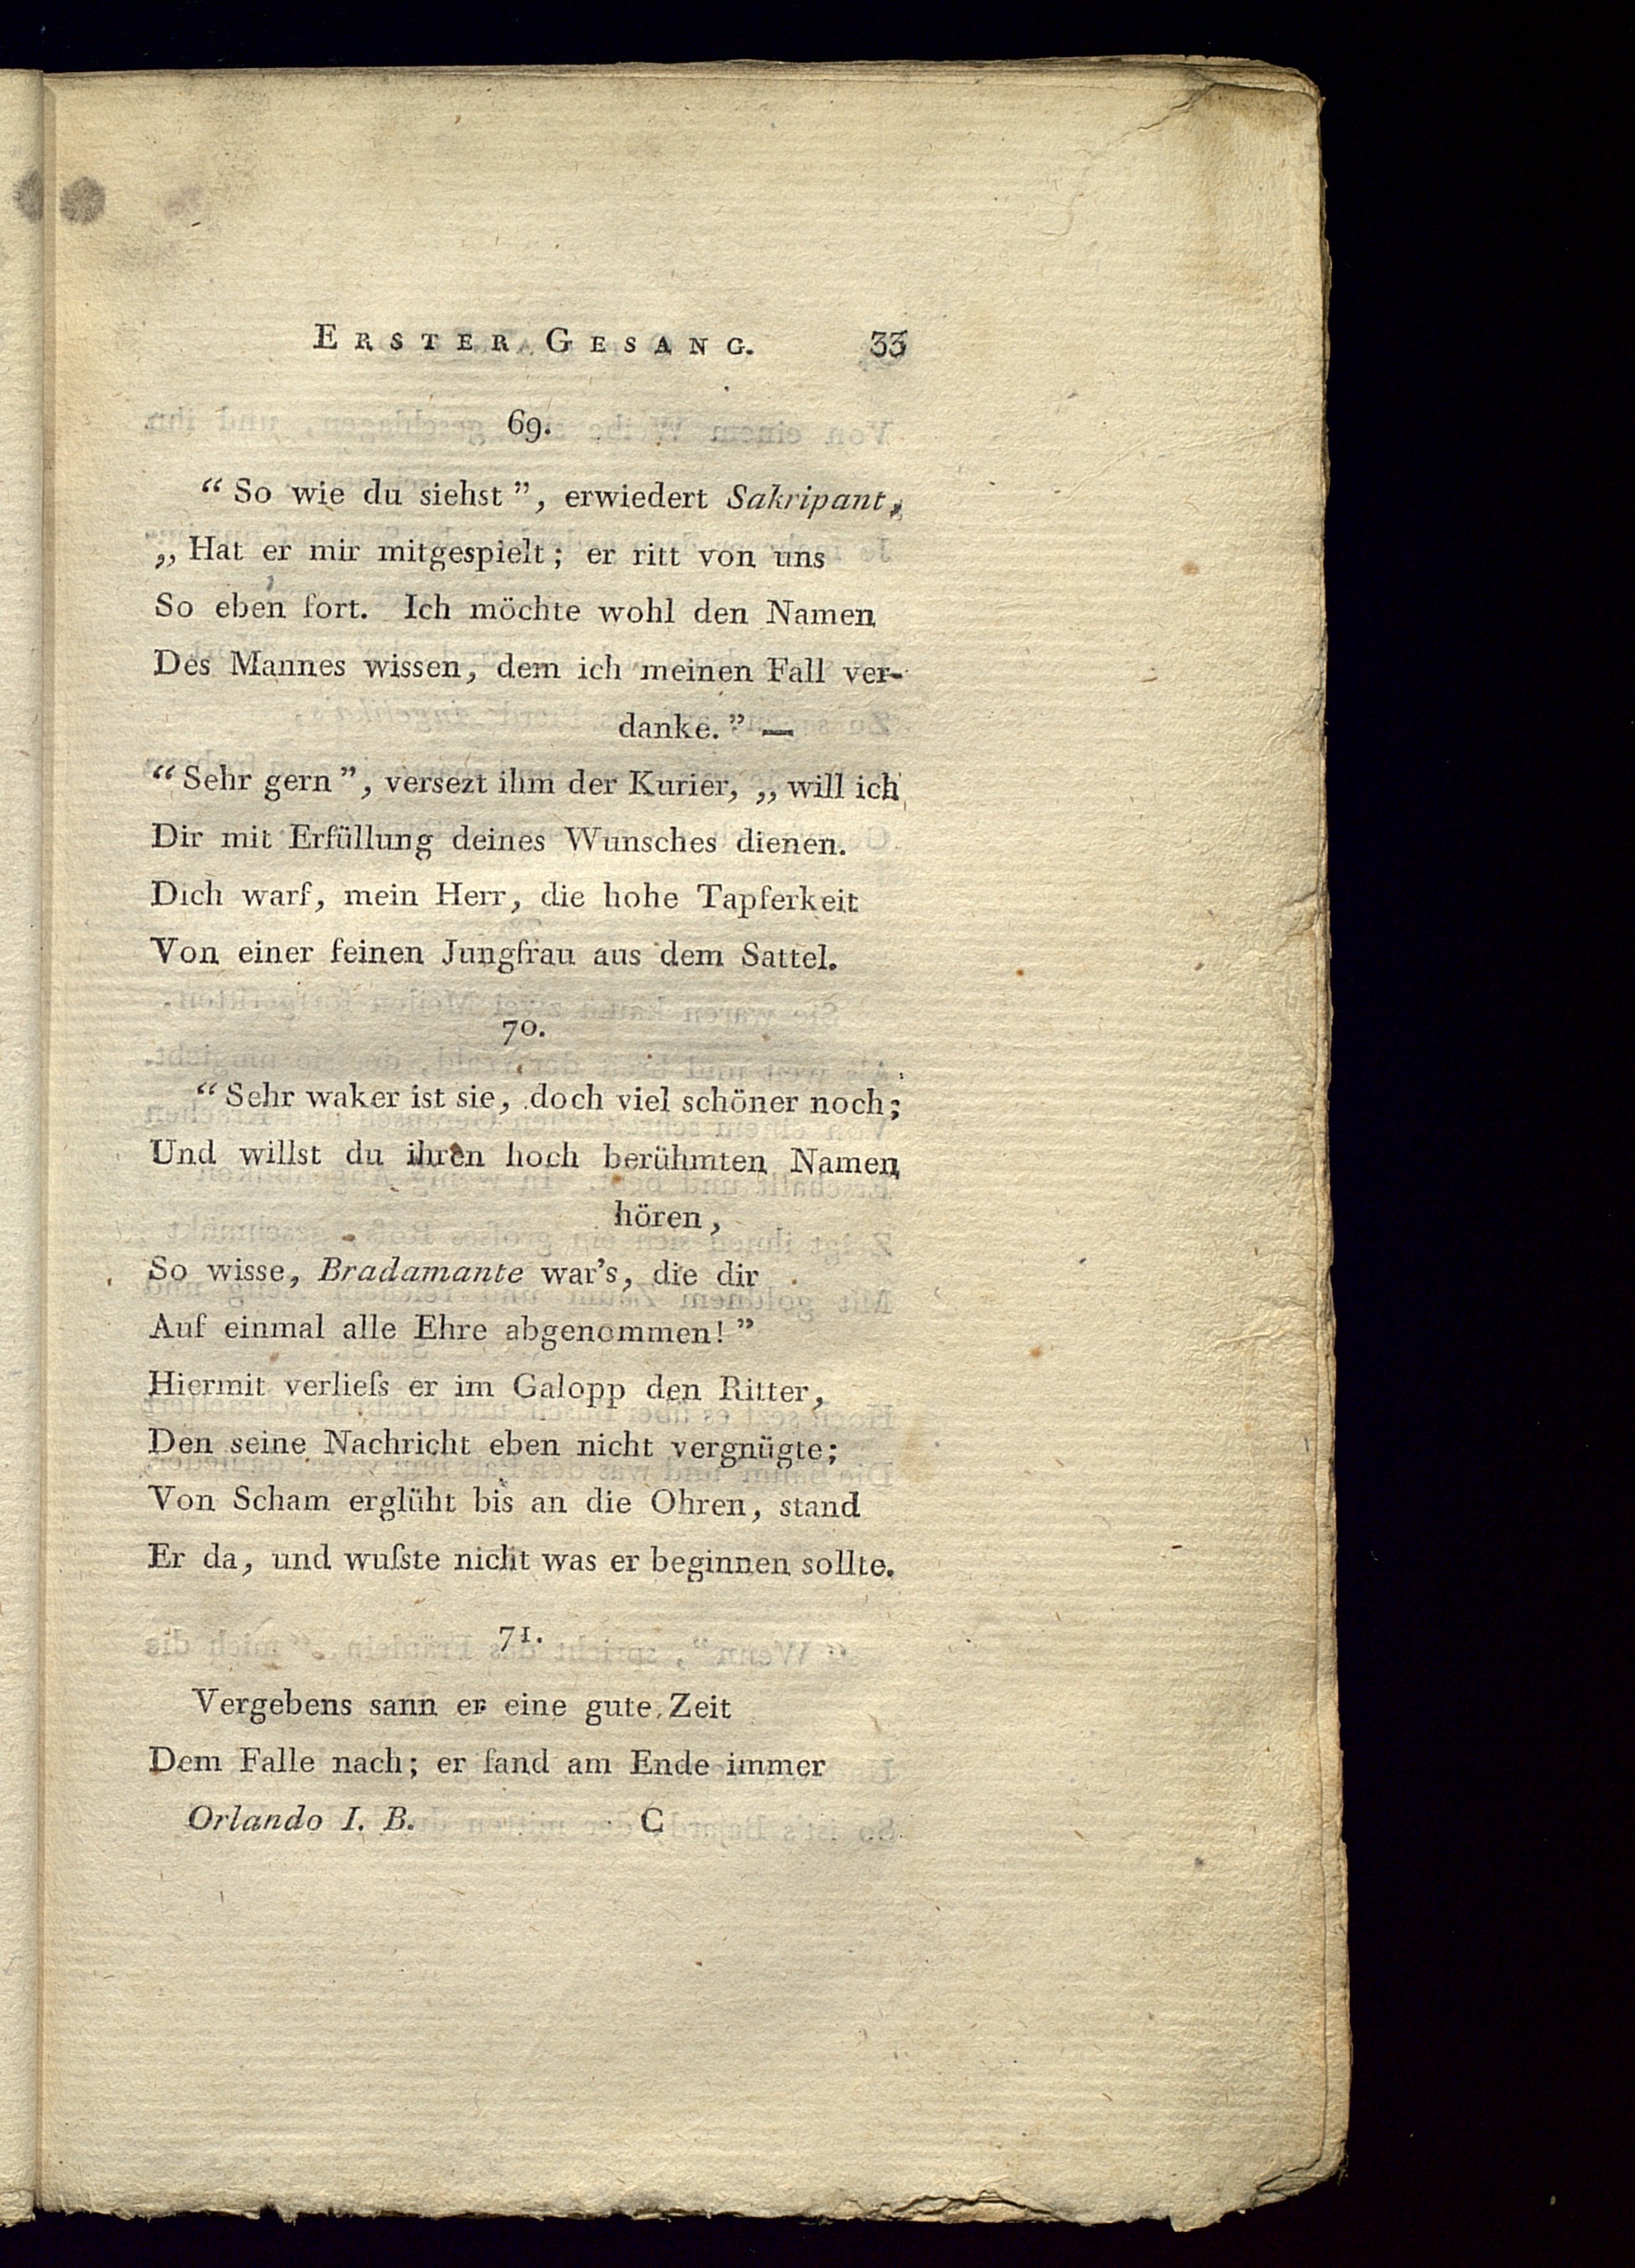 ERSTER GESANG. 33
69.
“ So wie du siehst ”, erwiedert Sakripant,
„ Hat er mir mitgespielt; er ritt von uns
So eben fort. Ich möchte wohl den Namen
Des Mannes wissen, dem ich meinen Fall ver-
danke. ” —
“ Sehr gern ”, versezt ihm der Kurier, „ will ich
Dir mit Erfüllung deines Wunsches dienen.
Dich warf, mein Herr, die hohe Tapferkeit
Von einer feinen Jungfrau aus dem Sattel.
70.
“ Sehr waker ist sie, doch viel schöner noch;
Und willst du ihren hoch berühmten Namen
hören,
So wisse, Bradamante war’s, die dir
Auf einmal alle Ehre abgenommen! ”
Hiermit verlieſs er im Galopp den Ritter,
Den seine Nachricht eben nicht vergnügte;
Von Scham erglüht bis an die Ohren, stand
Er da, und wuſste nicht was er beginnen sollte.
71.
Vergebens sann er eine gute Zeit
Dem Falle nach; er fand am Ende immer
Orlando I. B. C